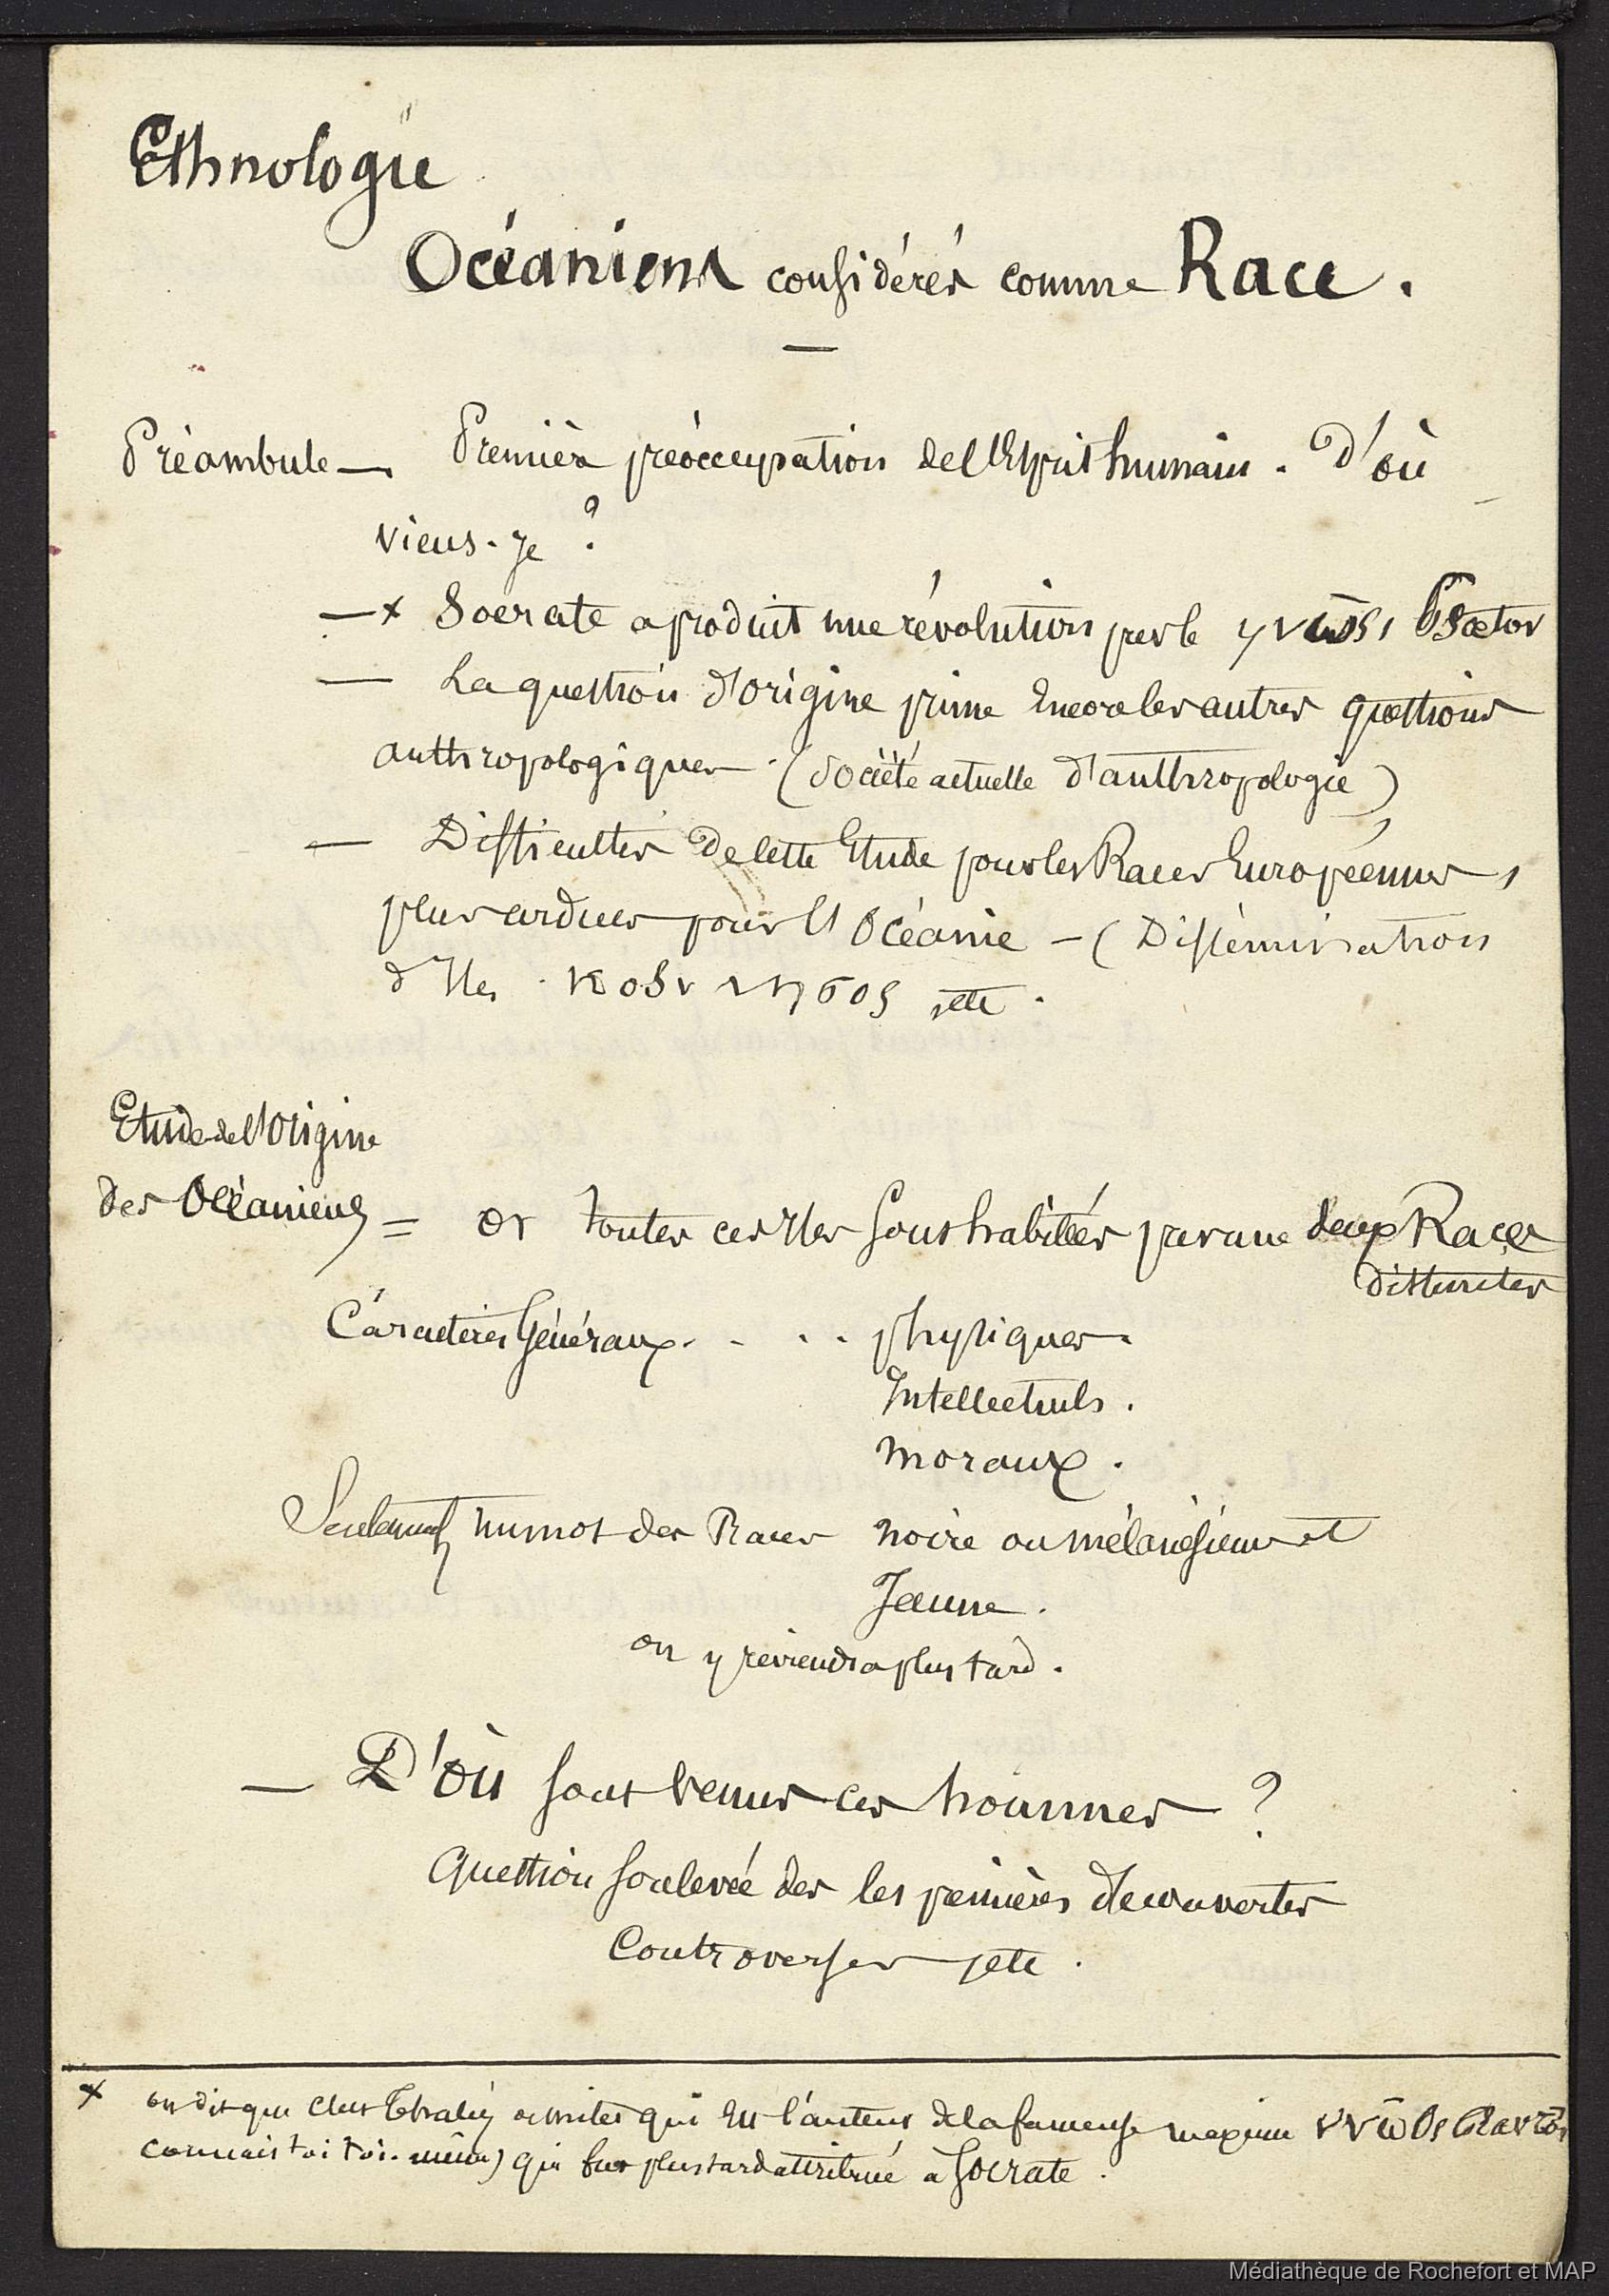 Ethnologie
Océaniens considérés comme Race.
Préambule — Première préoccupation de l'Esprit humain. D'où
viens-je ?
—x Socrate a produit une révolution par le γνῶθι σεαυτόν
— La question d'origine prime Encore les autres questions
anthropologiques. (Société actuelle d'anthropologie)
— Difficultés de cette Etude pour les Races Européennes,
plus ardues pour l'Océanie — (Dissémination
d'Iles. etc.
Etude de l'Origine
des Océaniens = Or toutes ces Iles sont habitées par une deux Races
distinctes
Caractères Généraux. . . . physiques.
Intellectuels.
Moraux.
Seulement un mot des Races noire ou mélanésienne et
Jaune.
on y reviendra plus tard.
— D'où sont venus ces hommes ?
Question soulevée dès les premières découvertes
Controverses, etc.
x on dit que c'est Thalès de milet qui Est l'auteur de la fameuse maxime γνῶθι σαυτόν
connais toi toi-même) qui fut plus tard attribuée à Socrate.
Médiathèque de Rochefort et MAP